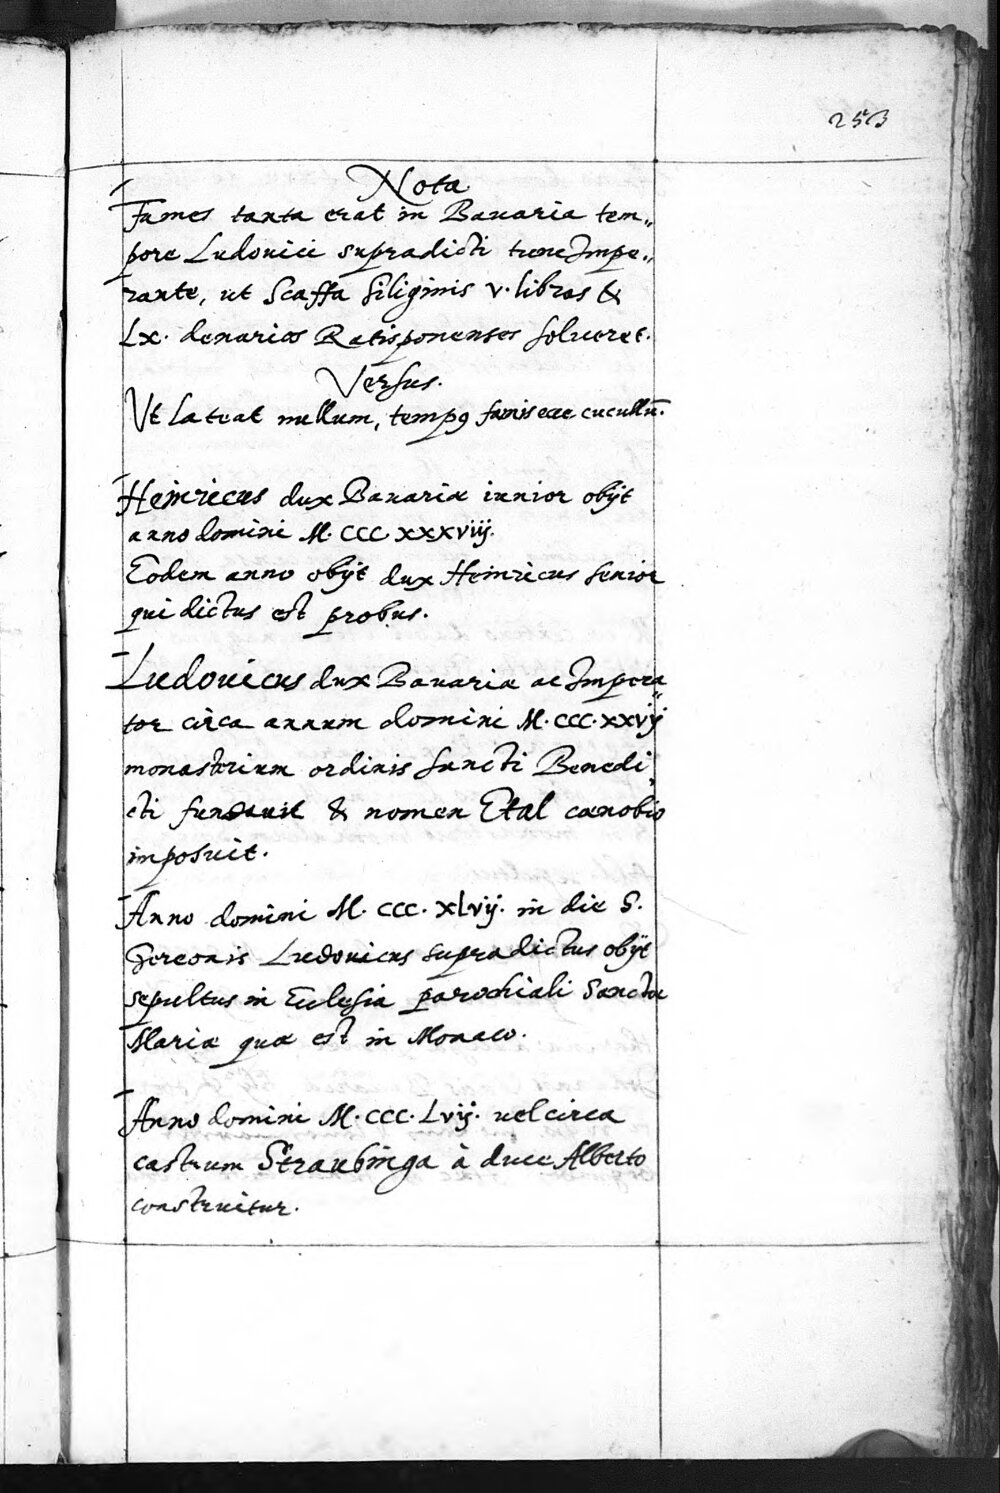 253
Nota
Fames tanta erat in Bauaria tem„
pore Ludouici supradicti tunc Impe„
rante, ut Scaffa siliginis v. libras &
Lx. denarios Ratisponenses solueret.
Versus.
Ut lateat nullum, tempꝯ famis ecce cucullū.
Heinricus dux Bauariæ iunior obijt
anno domini M. CCC. XXXViij.
Eodem anno obijt dux Heinricus senior
qui dictus est probus.
Ludouicus dux Bauariæ ac Impera„
tor circa annum domini M. CCC. XXVij
monasterium ordinis sancti Benedi„
cti fundauit & nomen Etal cœnobio
imposuit.
Anno domini M. CCC. XLVij. in die S.
Gereonis Ludouicus supradictus obijt
sepultus in Ecclesia parochiali Sanctæ
Mariæ quæ est in Monaco.
Anno domini M. CCC. Lvij. uel circa
castrum Straubinga à duce Alberto
construitur.